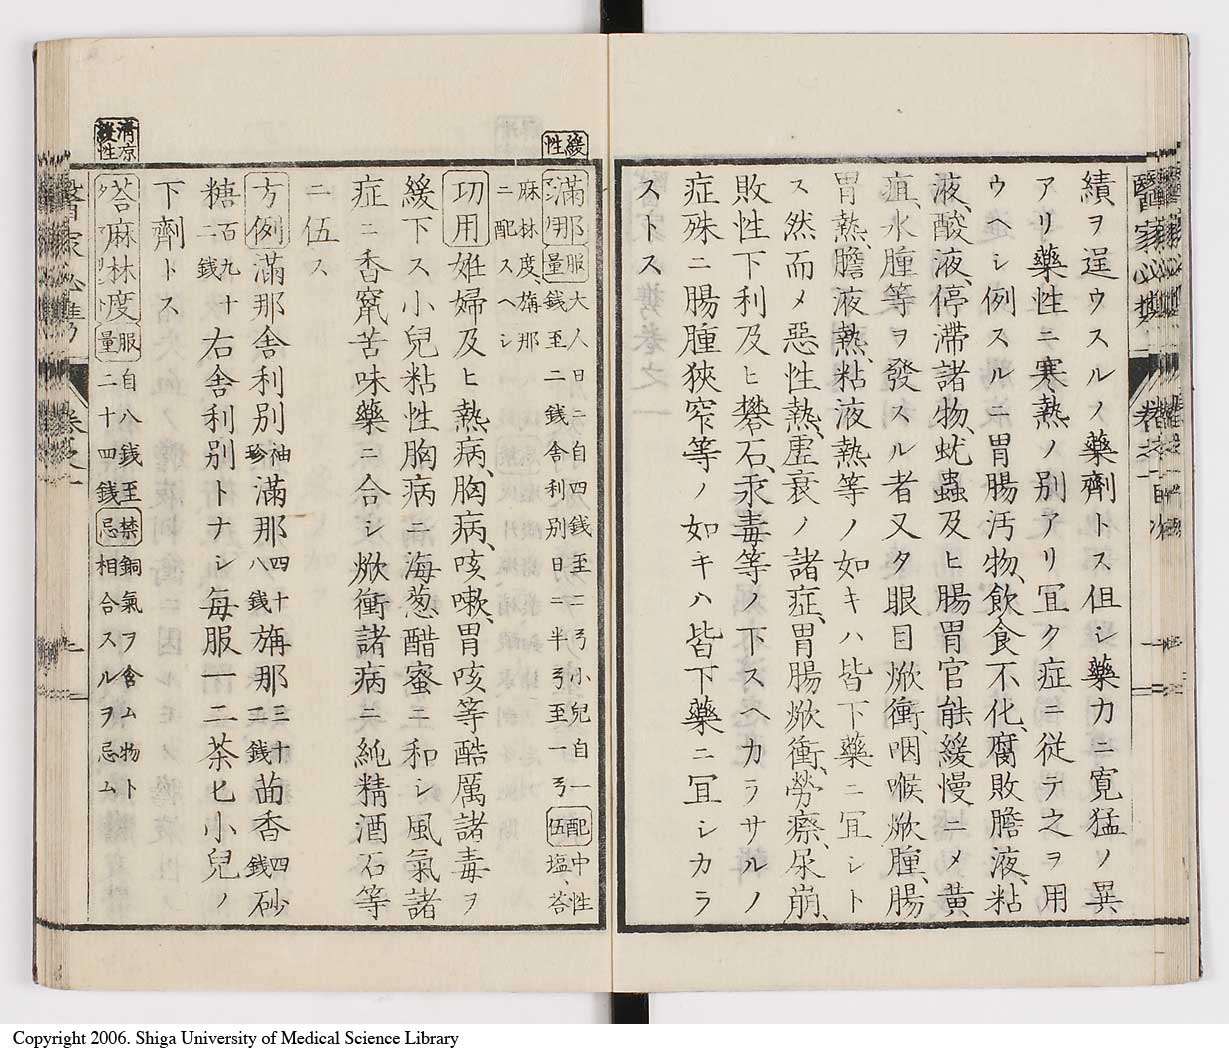 績ヲ逞ウスルノ藥劑トス但シ藥力ニ寛猛ノ異
アリ藥性ニ寒熱ノ別アリ冝ク症ニ従テ之ヲ用
ウヘシ例スルニ胃腸汚物、飲食不化、腐敗膽液、粘
液、酸液、停滞諸物、蚘蟲及ヒ腸胃官能緩慢ニメ黄
疸、水腫等ヲ發スル者又タ眼目焮衝、咽喉焮腫、腸
胃熱、膽液熱、粘液熱等ノ如キハ皆下藥ニ冝シト
ス然而メ惡性熱、虚衰ノ諸症、胃腸焮衝、勞瘵、尿崩、
敗性下利及ヒ礬石、汞毒等ノ下スヘカラサルノ
症殊ニ腸腫狹窄等ノ如キハ皆下藥ニ冝シカラ
ストス
醫家必携 卷之一
緩性
滿那 服量 大人日ニ自四錢至二弓小兒自一錢至二錢舍利別日ニ半弓至一弓 配伍 中性塩、荅麻林度、旃那ニ配スヘシ
功用 姙婦及ヒ熱病、胸病、咳嗽、胃咳等酷厲諸毒ヲ
緩下ス小兒粘性胸病ニ海葱醋蜜ニ和シ風氣諸
症ニ香竄苦味藥ニ合シ焮衝諸病ニ純精酒石等
ニ伍ス
方例 滿那舎利別 袖珍 滿那 四十八錢 旃那 三十二錢 茴香 四錢 砂
糖 百九十二錢 右舎利別トナシ毎服一二茶匕小兒ノ
下劑トス
清凉緩性
荅麻林度 タマリンド 服量 自八錢至二十四錢 禁忌 銅氣ヲ含ム物ト相合スルヲ忌ム
醫家必携 卷之一
Copyright 2006. Shiga University of Medical Science Library